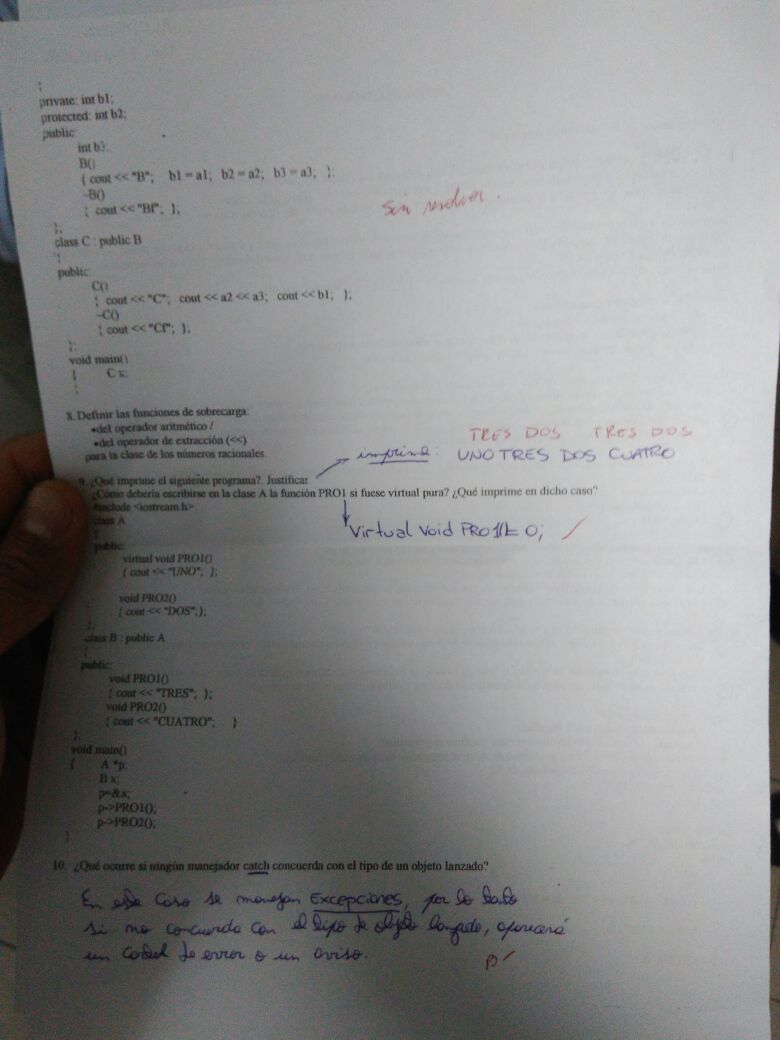 {
private: int b1;
protected: int b2;
public:
int b3;
B()
{ cout << "B"; b1 = a1; b2 = a2; b3 = a3; };
~B()
{ cout << "Bf"; };
};
Sin resolver.
class C : public B
{
public:
C()
{ cout << "C"; cout << a2 << a3; cout << b1; };
~C()
{ cout << "Cf"; };
};
void main()
{ C x;
}
8. Definir las funciones de sobrecarga:
•del operador aritmético /
•del operador de extracción (<<)
para la clase de los números racionales.
TRES DOS TRES DOS
imprime: UNO TRES DOS CUATRO
9. ¿Qué imprime el siguiente programa?. Justificar.
¿Cómo debería escribirse en la clase A la función PRO1 si fuese virtual pura? ¿Qué imprime en dicho caso?
Virtual void PRO1()= 0;
#include <iostream.h>
class A
{
public:
virtual void PRO1()
{ cout << "UNO"; };
void PRO2()
{ cout << "DOS";};
};
class B : public A
{
public:
void PRO1()
{ cout << "TRES"; };
void PRO2()
{ cout << "CUATRO"; }
};
void main()
{ A *p;
B x;
p=&x;
p->PRO1();
p->PRO2();
}
10. ¿Qué ocurre si ningún manejador catch concuerda con el tipo de un objeto lanzado?
En este caso se manejan Excepciones, por lo tanto
si no concuerda con el tipo de objeto lanzado, aparecerá
un cartel de error o un aviso.